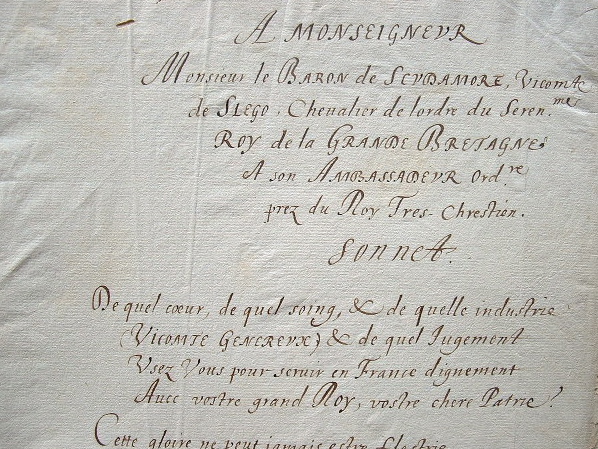 A MONSEIGNEVR
Monsieur le BARON de SCVDAMORE, Vicomte
de SLEGO, Chevalier de lordre du Seren.me
ROY de la GRANDE BRETAGNE;
A son AMBASSADEVR Ord.re
prez du Roy Tres-Chrestien.
SONNET.
De quel cœur, de quel soing, & de quelle industrie
(VICOMTE GENEREVX) & de quel Jugement
Vsez Vous pour servir en France dignement
Avec vostre grand Roy, vostre chere Patrie?
Cette gloire ne peut jamais estre flestrie